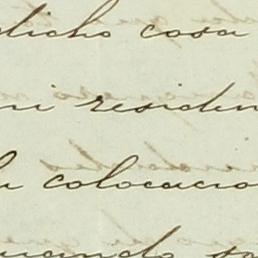 dicho cosa
mi residen
colocacio
uando